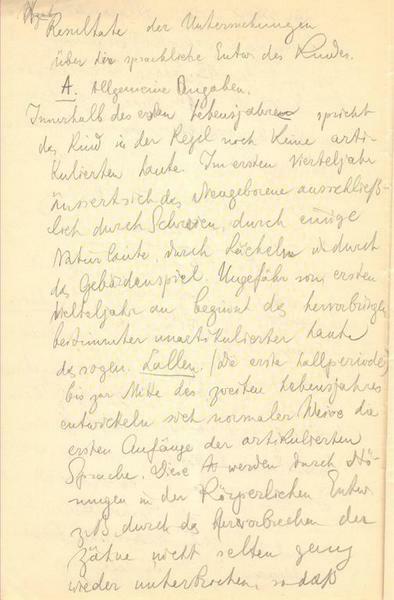 Resultate der Untersuchungen
über die sprachliche Entw. des Kindes.
A. Allgemeine Angaben.
Innerhalb des ersten Lebensjahres spricht
das Kind in der Regel noch keine arti-
kulierten Laute. Im ersten Vierteljahr
äussert sich das Neugeborene ausschließ-
lich durch Schreien, durch einige
Naturlaute, durch Lächeln u. durch
das Gebärdenspiel. Ungefähr vom ersten
Vierteljahr an beginnt das hervorbringen
bestimmter unartikulierter Laute
das sogen. Lallen. (die erste Lallperiode)
bis zur Mitte des zweiten Lebensjahres
entwickeln sich normaler Weise die
ersten Anfänge der artikulierten
Sprache. Diese A werden durch Stö-
rungen in der Körperlichen Entw.
z.B. durch das Hervorbrechen der
Zähne nicht selten ganz
wieder unterbrochen, sodaß